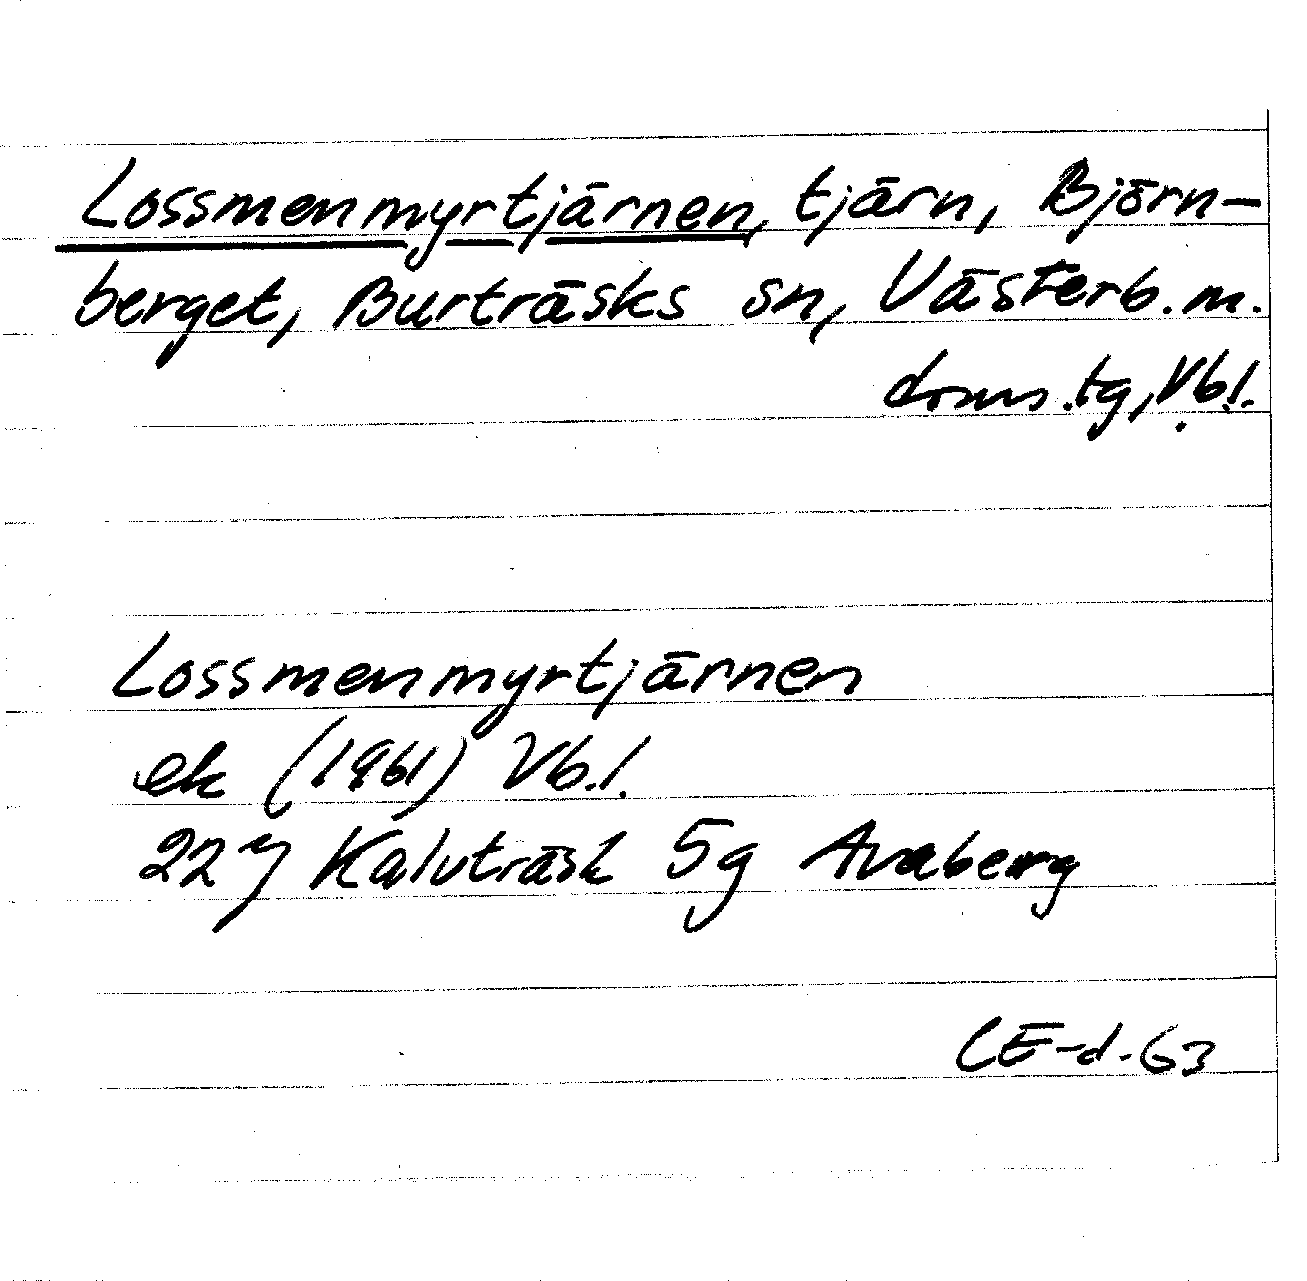 Lossmenmyrtjärnen, tjärn, Björn-
berget, Burträsks sn, Västerb. m.
doms.tg, Vb.l.
Lossmenmyrtjärnen
ek (1961) Vb.l.
22 J Kalvträsk 5g Avaberg
CE-d. 63